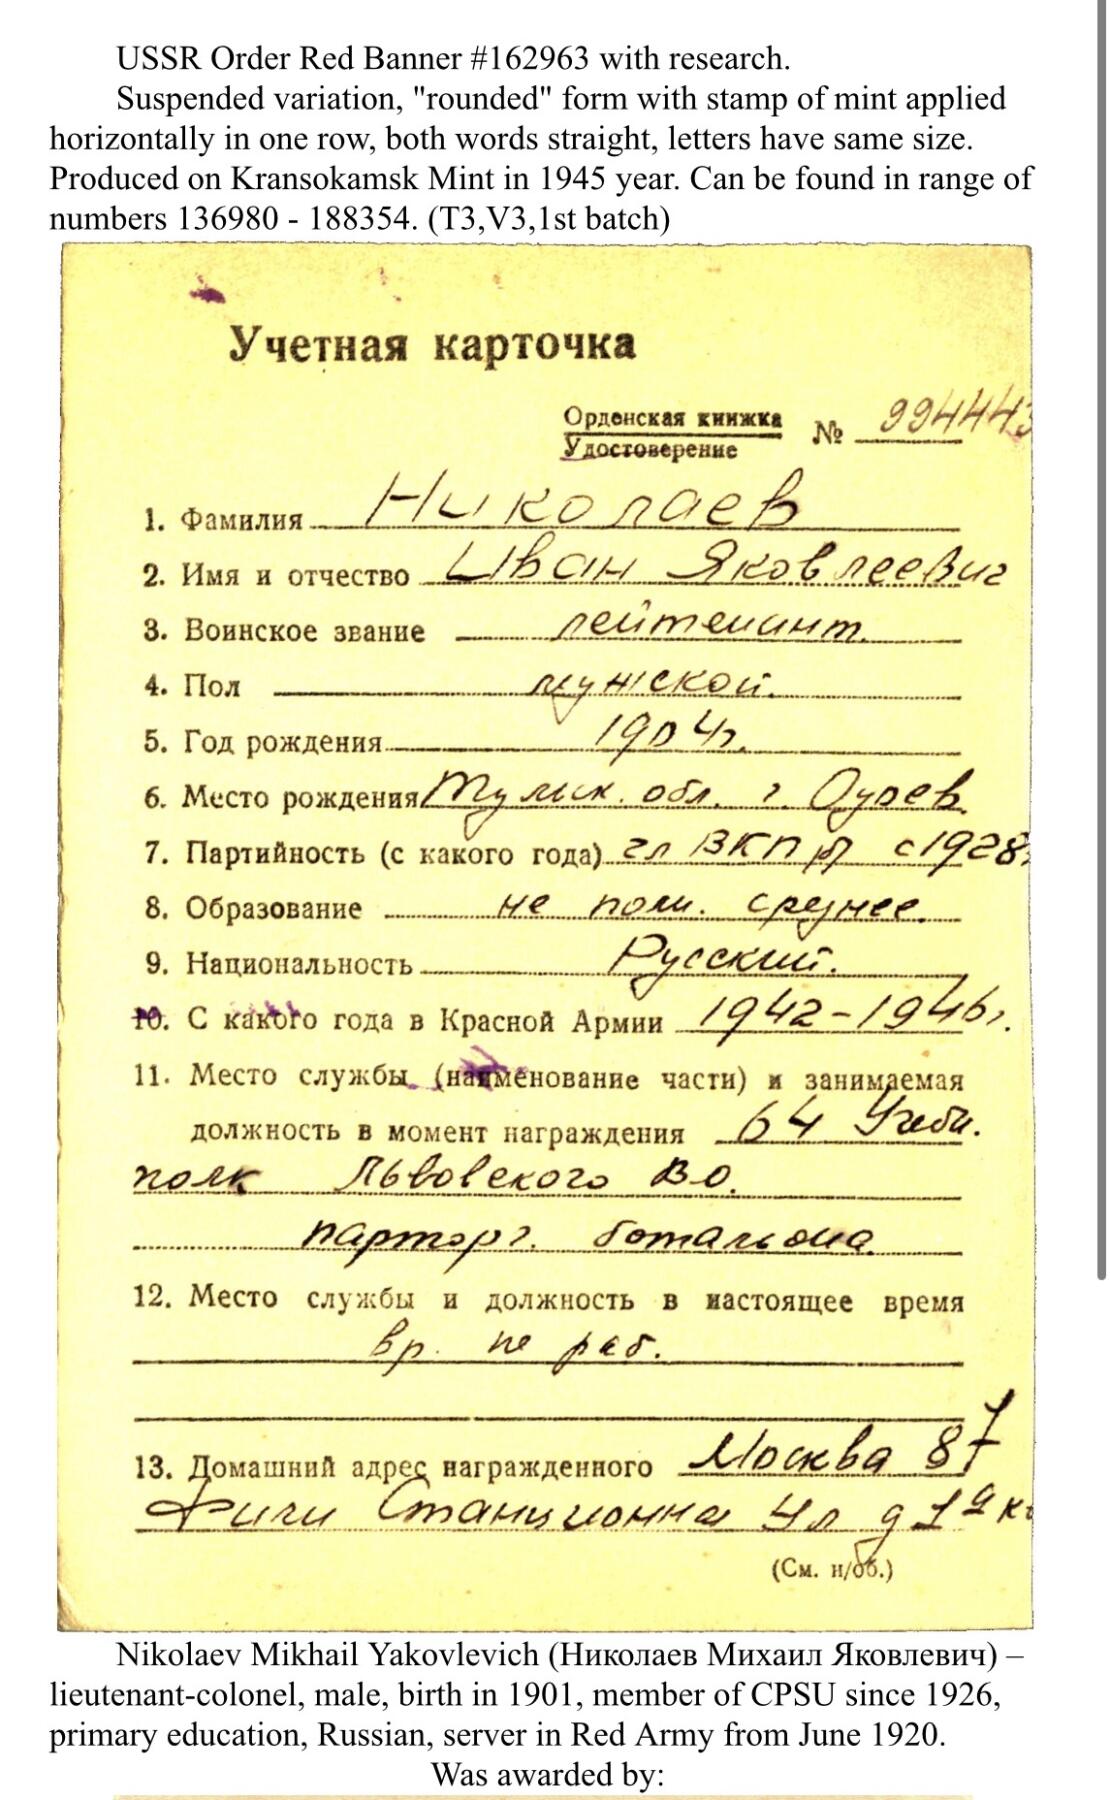 USSR Order Red Banner #162963 with research.
Suspended variation, "rounded" form with stamp of mint applied
horizontally in one row, both words straight, letters have same size.
Produced on Kransokamsk Mint in 1945 year. Can be found in range of
numbers 136980 - 188354. (T3,V3,1st batch)
Учетная карточка
Орденская книжка
Удостоверение № 994443
1. Фамилия Николаев
2. Имя и отчество Иван Яковлеевич
3. Воинское звание лейтенант.
4. Пол мужской.
5. Год рождения 1904г.
6. Место рождения Тульск. обл. г. Одоев
7. Партийность (с какого года) чл ВКПб с 1928г
8. Образование не полн. среднее.
9. Национальность Русский.
10. С какого года в Красной Армии 1942-1946г.
11. Место службы (наименование части) и занимаемая
должность в момент награждения 64 Учебн.
полк Львовского ВО.
парторг. батальона
12. Место службы и должность в настоящее время
вр. не раб.
13. Домашний адрес награжденного Москва 87
Фили Станционна ул д 19
(См. н/об.)
Nikolaev Mikhail Yakovlevich (Николаев Михаил Яковлевич) –
lieutenant-colonel, male, birth in 1901, member of CPSU since 1926,
primary education, Russian, server in Red Army from June 1920.
Was awarded by: